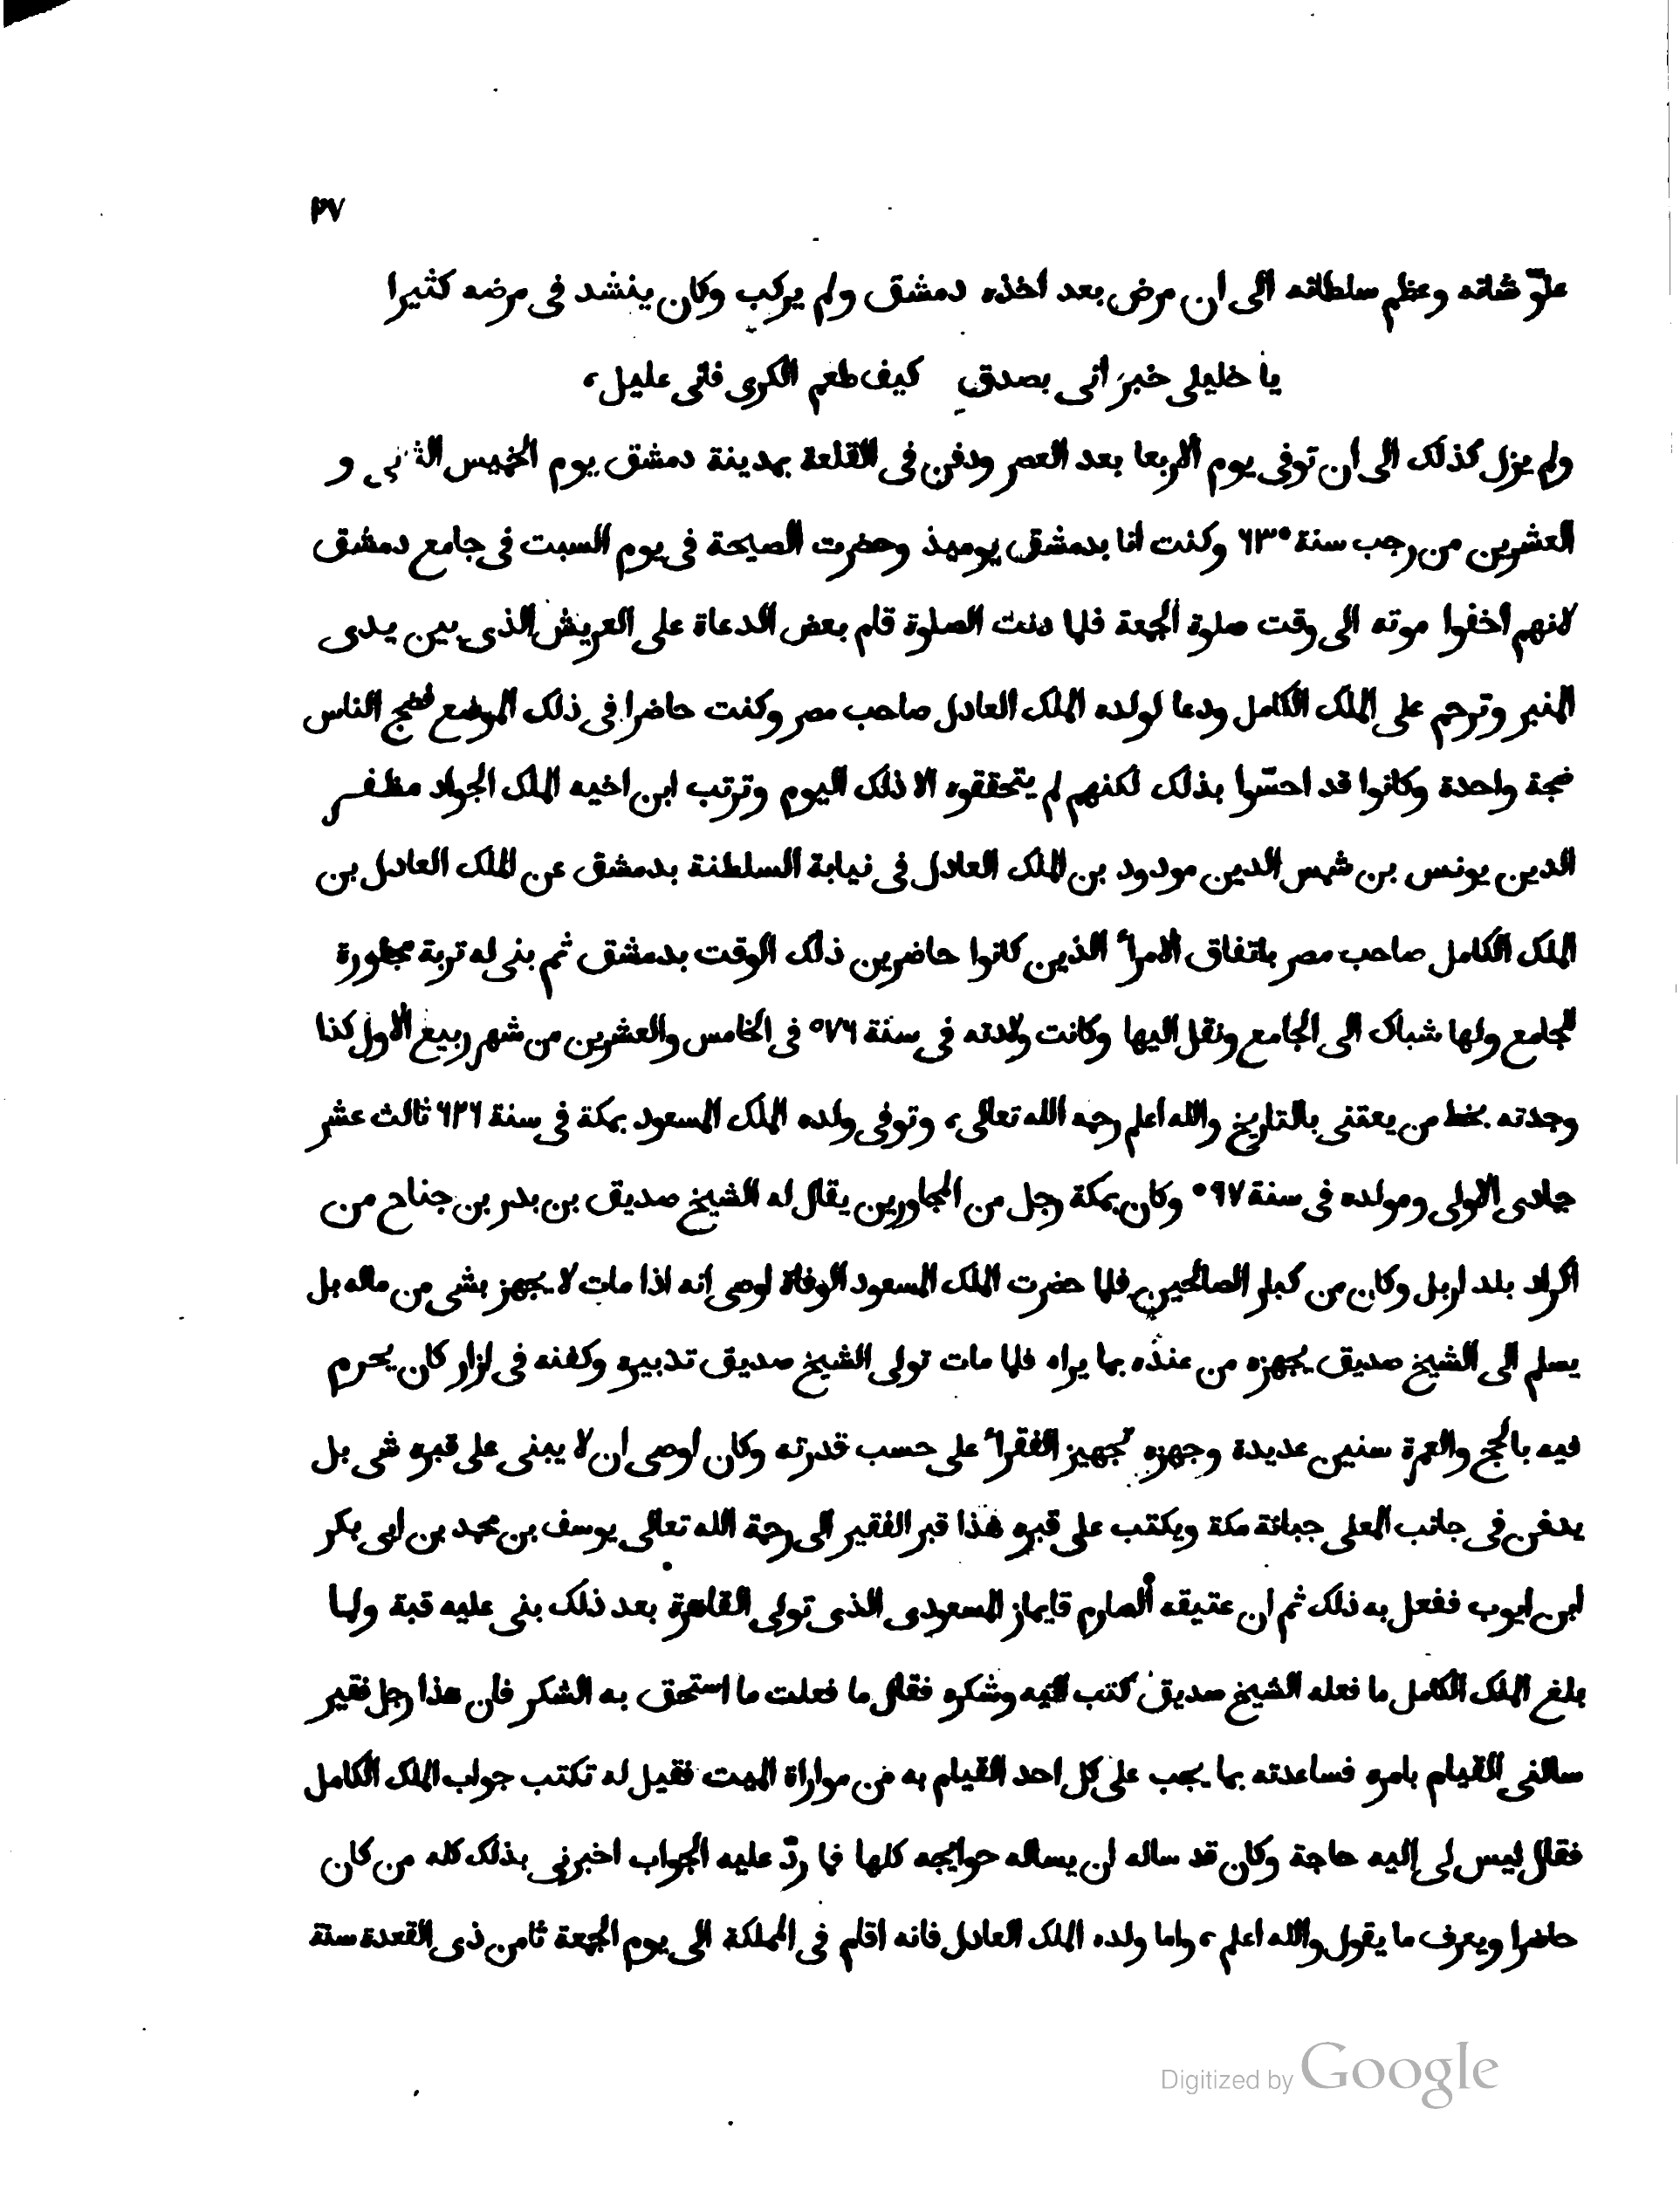 ٣٧
علوّ شانه وعظم سلطانه الى ان مرض بعد اخذه دمشق ولم يركب وكان ينشد فى مرضه كثيرا
يا خليلى خبرانى بصدق كيف طعم الكرى فانى عليل،
ولم يزل كذلك الى ان توفى يوم الاربعا بعد العصر ودفن فى القلعة بمدينة دمشق يوم الخميس الثانى و
العشرين من رجب سنة ٦٣٥ وكنت انا بدمشق يوميذ وحضرت الصيحة فى يوم السبت فى جامع دمشق
لانهم اخفوا موته الى وقت صلوة الجمعة فلما دنت الصلوة قام بعض الدعاة على العريش الذى بين يدى
المنبر وترحم على الملك الكامل ودعا لولده الملك العادل صاحب مصر وكنت حاضرا فى ذلك الموضع فضج الناس
ضجة واحدة وكانوا قد احسّوا بذلك لكنهم لم يتحققوه الا ذلك اليوم وترتب ابن اخيه الملك الجواد مظفر
الدين يونس بن شمس الدين مودود بن الملك العادل فى نيابة السلطنة بدمشق عن الملك العادل بن
الملك الكامل صاحب مصر باتفاق الامرأ الذين كانوا حاضرين ذلك الوقت بدمشق ثم بنى له تربة مجاورة
الجامع ولها شباك الى الجامع ونقل اليها وكانت ولادته فى سنة ٥٧٦ فى الخامس والعشرين من شهر ربيع الاول كذا
وجدته بخط من يعتنى بالتاريخ والله اعلم رحمه الله تعالى، وتوفى ولده الملك المسعود بمكة فى سنة ٦٢٦ ثالث عشر
جمادى الاولى ومولده فى سنة ٥٩٧ وكان بمكة رجل من المجاورين يقال له الشيخ صديق بن بدر بن جناح من
اكراد بلد اربل وكان من كبار الصالحين فلما حضرت الملك المسعود الوفاة اوصى انه اذا مات لا يجهز بشى من ماله بل
يسلم الى الشيخ صديق يجهزه من عنده بما يراه فلما مات تولى الشيخ صديق تدبيره وكفنه فى ازار كان يحرم
فيه بالحج والعمرة سنين عديدة وجهزه تجهيز الفقرأ على حسب قدرته وكان اوصى ان لا يبنى على قبره شى بل
يدفن فى جانب المعلى جبانة مكة ويكتب على قبره هذا قبر الفقير الى رحمة الله تعالى يوسف بن محمد بن ابى بكر
ابن ايوب ففعل به ذلك ثم ان عتيقه الصارم قايماز المسعودى الذى تولى القاهرة بعد ذلك بنى عليه قبة ولما
بلغ الملك الكامل ما فعله الشيخ صديق كتب اليه وشكره فقال ما فعلت ما استحق به الشكر فان هذا رجل فقير
سالنى القيام بامره فساعدته بما يجب على كل احد القيام به من مواراة الميت فقيل له تكتب جواب الملك الكامل
فقال ليس لى اليه حاجة وكان قد ساله ان يساله حوايجه كلها فما ردّ عليه الجواب اخبرنى بذلك كله من كان
حاضرا ويعرف ما يقول والله اعلم، واما ولده الملك العادل فانه اقام فى المملكة الى يوم الجمعة ثامن ذى القعدة سنة
Digitized by Google